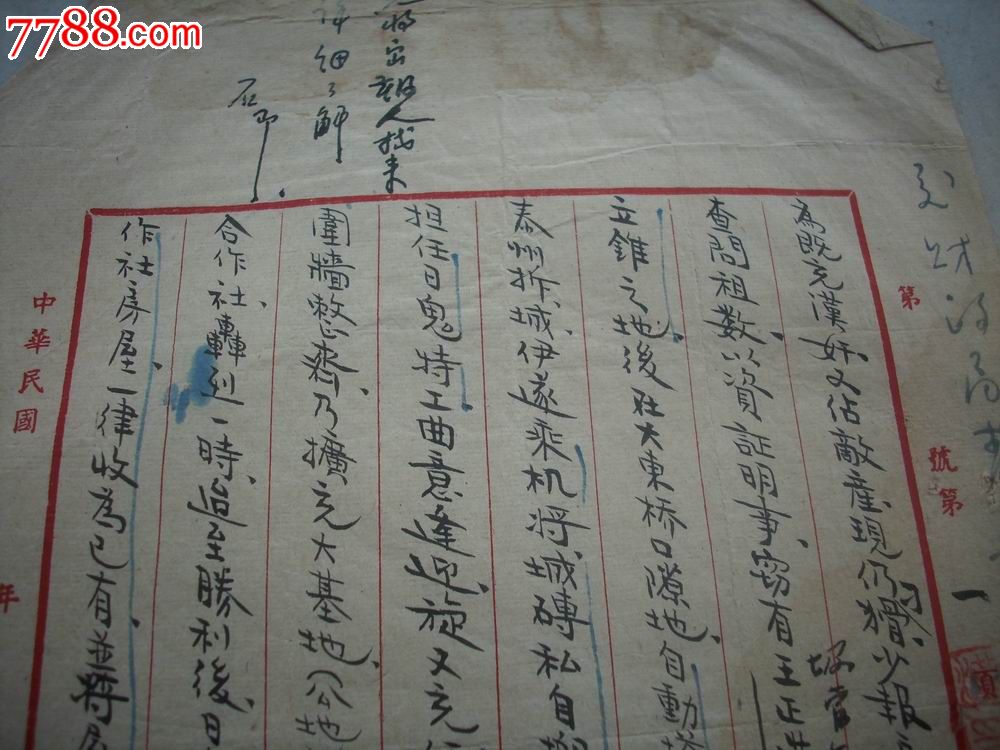 7788.com
将密報人找来
详细了解
石印
第
號第
一
為既充漢奸又佔敵產現仍獪少報
查問租数以資証明事窃有王正
立錐之地後在大東桥口隙地自動搭
泰州拆城伊遂乘机将城磚私自搬
担任日鬼特工曲意逢迎旋又充
圍牆整齊乃擴充大基地(公地
合作社轟烈一時迨至勝利後日
作社房屋一律收為已有並將房
中華民國
年